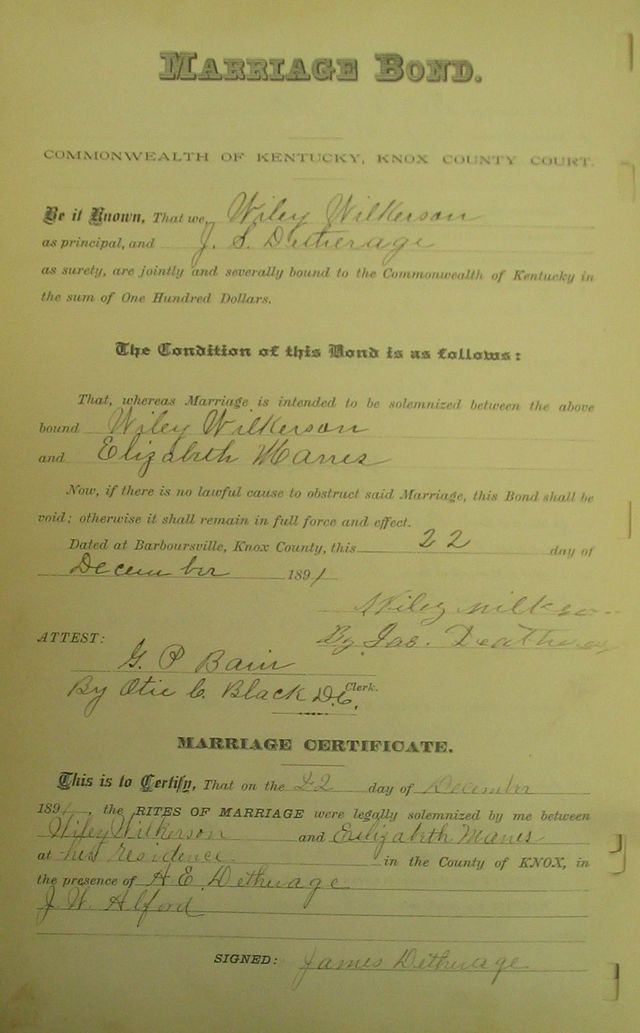 MARRIAGE BOND.
COMMONWEALTH OF KENTUCKY, KNOX COUNTY COURT.
Be it Known, That we, Wiley Wilkerson
as principal, and J. S. Detherage
as surety, are jointly and severally bound to the Commonwealth of Kentucky in
the sum of One Hundred Dollars.
The Condition of this Bond is as follows:
That, whereas Marriage is intended to be solemnized between the above
bound Wiley Wilkerson
and Elizabeth Manes
Now, if there is no lawful cause to obstruct said Marriage, this Bond shall be
void; otherwise it shall remain in full force and effect.
Dated at Barboursville, Knox County, this 22 day of
December 1891
Wiley
By Jas.
ATTEST:
G. P Bain
By Otis C. Black D.C. Clerk.
MARRIAGE CERTIFICATE.
This is to Certify, That on the 22 day of December
1891, the RITES OF MARRIAGE were legally solemnized by me between
Wiley Wilkerson and Eulizabeth Manes
at his residence in the County of KNOX, in
the presence of A. E. Detherage
J. W. Alford
SIGNED: James Detherage